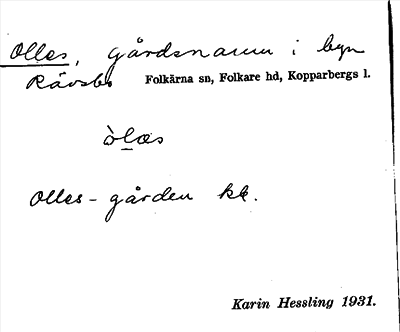 Olles, gårdsnamn i byn
Rävsbo Folkärna sn, Folkare hd, Kopparbergs l.
òl̲æs
Olles-gården kk.
Karin Hessling 1931.